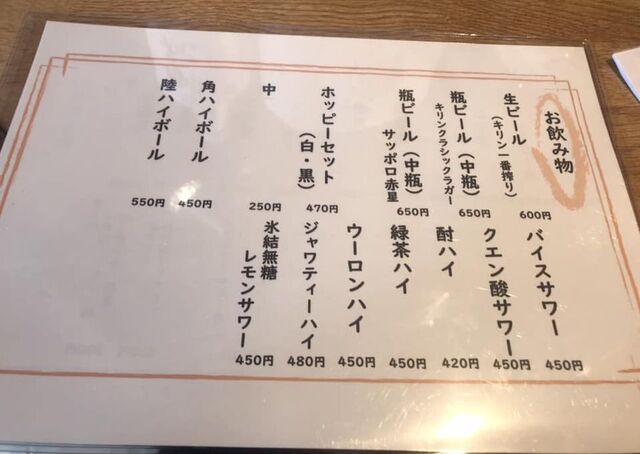 お飲み物
生ビール
(キリン一番搾り)
600円
瓶ビール(中瓶)
キリンクラシックラガー
650円
瓶ビール(中瓶)
サッポロ赤星
650円
ホッピーセット
(白・黒)
470円
中
250円
角ハイボール
450円
陸ハイボール
550円
バイスサワー
450円
クエン酸サワー
450円
酎ハイ
420円
緑茶ハイ
450円
ウーロンハイ
450円
ジャワティーハイ
480円
氷結無糖
レモンサワー
450円